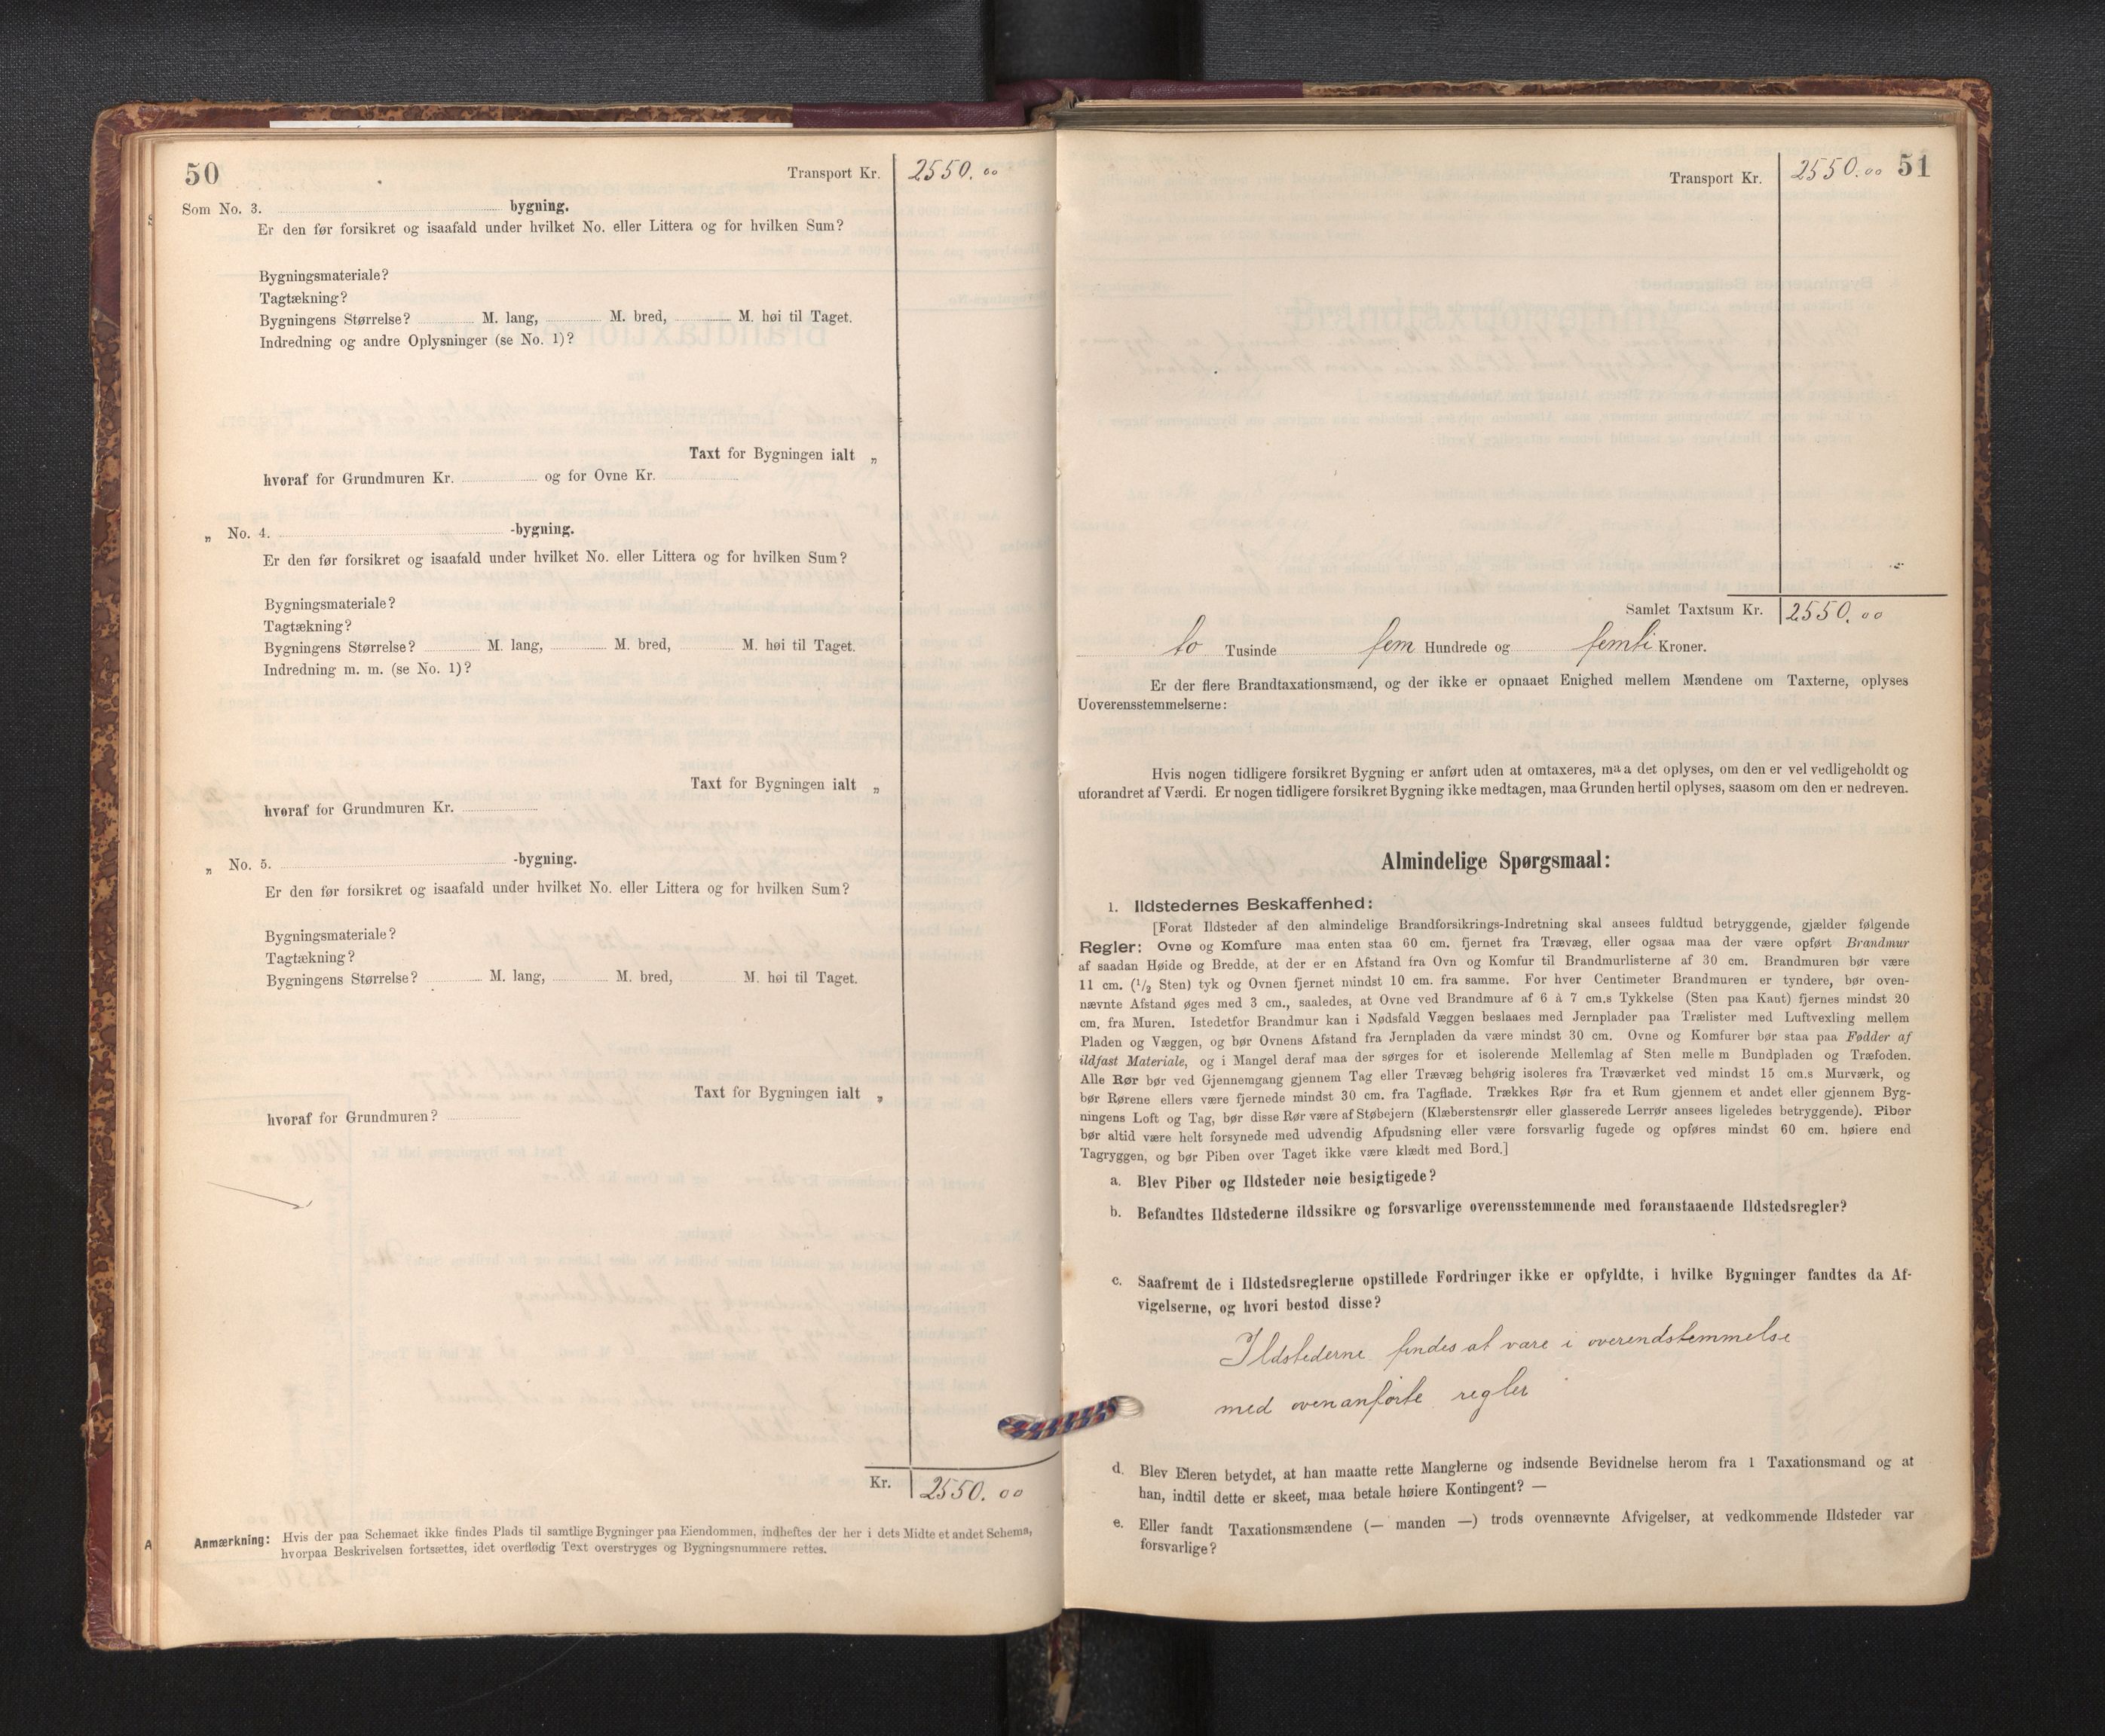 50
Transport Kr. 2550.00
Som No. 3. bygning.
Er den før forsikret og isaafald under hvilket No. eller Littera og for hvilken Sum?
Bygningsmateriale?
Tagtækning?
Bygningens Størrelse? M. lang, M. bred, M. høi til Taget.
Indredning og andre Oplysninger (se No. 1)?
Taxt for Bygningen ialt „
hvoraf for Grundmuren Kr. og for Ovne Kr.
„ No. 4. -bygning.
Er den før forsikret og isaafald under hvilket No. eller Littera og for hvilken Sum?
Bygningsmateriale?
Tagtækning?
Bygningens Størrelse? M. lang, M. bred, M. høi til Taget.
Indredning m. m. (se No. 1)?
Taxt for Bygningen ialt „
hvoraf for Grundmuren Kr.
„ No. 5. -bygning.
Er den før forsikret og isaafald under hvilket No. eller Littera og for hvilken Sum?
Bygningsmateriale?
Tagtækning?
Bygningens Størrelse? M. lang, M. bred, M. høi til Taget.
Taxt for Bygningen ialt „
hvoraf for Grundmuren?
Kr. 2550.00
Anmærkning: Hvis der paa Schemaet ikke findes Plads til samtlige Bygninger paa Eiendommen, indheftes der her i dets Midte et andet Schema,
hvorpaa Beskrivelsen fortsættes, idet overflødig Text overstryges og Bygningsnummere rettes.
51
Transport Kr. 2550.00
Samlet Taxtsum Kr. 2550.00
to Tusinde fem Hundrede og femti Kroner.
Er der flere Brandtaxationsmænd, og der ikke er opnaaet Enighed mellem Mændene om Taxterne, oplyses
Uoverensstemmelserne:
Hvis nogen tidligere forsikret Bygning er anført uden at omtaxeres, maa det oplyses, om den er vel vedligeholdt og
uforandret af Værdi. Er nogen tidligere forsikret Bygning ikke medtagen, maa Grunden hertil oplyses, saasom om den er nedreven.
Almindelige Spørgsmaal:
1. Ildstedernes Beskaffenhed:
[Forat Ildsteder af den almindelige Brandforsikrings-Indretning skal ansees fuldtud betryggende, gjælder følgende
Regler: Ovne og Komfure maa enten staa 60 cm. fjernet fra Trævæg, eller ogsaa maa der være opført Brandmur
af saadan Høide og Bredde, at der er en Afstand fra Ovn og Komfur til Brandmurlisterne af 30 cm. Brandmuren bør være
11 cm. (1/2 Sten) tyk og Ovnen fjernet mindst 10 cm. fra samme. For hver Centimeter Brandmuren er tyndere, bør oven-
nævnte Afstand øges med 3 cm., saaledes, at Ovne ved Brandmure af 6 à 7 cm.s Tykkelse (Sten paa Kant) fjernes mindst 20
cm. fra Muren. Istedetfor Brandmur kan i Nødsfald Væggen beslaaes med Jernplader paa Trælister med Luftvexling mellem
Pladen og Væggen, og bør Ovnens Afstand fra Jernpladen da være mindst 30 cm. Ovne og Komfurer bør staa paa Fødder af
ildfast Materiale, og i Mangel deraf maa der sørges for et isolerende Mellemlag af Sten mellem Bundpladen og Træfoden.
Alle Rør bør ved Gjennemgang gjennem Tag eller Trævæg behørig isoleres fra Træværket ved mindst 15 cm.s Murværk, og
bør Rørene ellers være fjernede mindst 30 cm. fra Tagflade. Trækkes Rør fra et Rum gjennem et andet eller gjennem Byg-
ningens Loft og Tag, bør disse Rør være af Støbejern (Klæberstensrør eller glasserede Lerrør ansees ligeledes betryggende). Piber
bør altid være helt forsynede med udvendig Afpudsning eller være forsvarlig fugede og opføres mindst 60 cm. høiere end
Tagryggen, og bør Piben over Taget ikke være klædt med Bord.]
a. Blev Piber og Ildsteder nøie besigtigede?
b. Befandtes Ildstederne ildssikre og forsvarlige overensstemmende med foranstaaende Ildstedsregler?
c. Saafremt de i Ildstedsreglerne opstillede Fordringer ikke er opfyldte, i hvilke Bygninger fandtes da Af-
vigelserne, og hvori bestod disse?
Ildstederne findes at være i overendstemmelse
med ovenanførte regler
d. Blev Eieren betydet, at han maatte rette Manglerne og indsende Bevidnelse herom fra 1 Taxationsmand og at
han, indtil dette er skeet, maa betale høiere Kontingent? —
e. Eller fandt Taxationsmændene (— manden —) trods ovennævnte Afvigelser, at vedkommende Ildsteder var
forsvarlige?